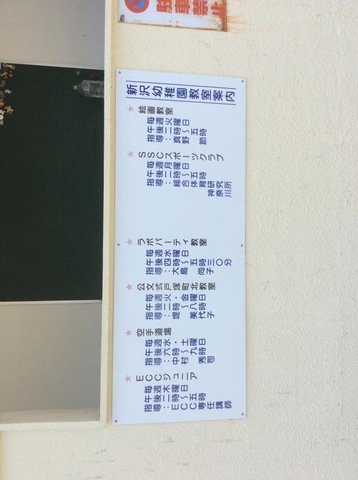 駐車禁止
新沢幼稚園教室案内
★絵画教室
毎週火曜日
午後二時〜五時
指導：真野 節
★SSCスポーツクラブ
毎週月曜日
午後二時〜五時
指導：総合体育研究所
神奈川
★ラボパーティ教室
毎週水曜日
午後四時〜五時三〇分
指導：大島 尚子
★公文式戸塚町北教室
毎週火・金曜日
午後二時〜八時
指導：堤 美代子
★空手道場
毎週水・土曜日
午後六時〜九時
指導：中村 秀司
★ECCジュニア
毎週木曜日
午後二時〜五時
指導：ECC専任講師